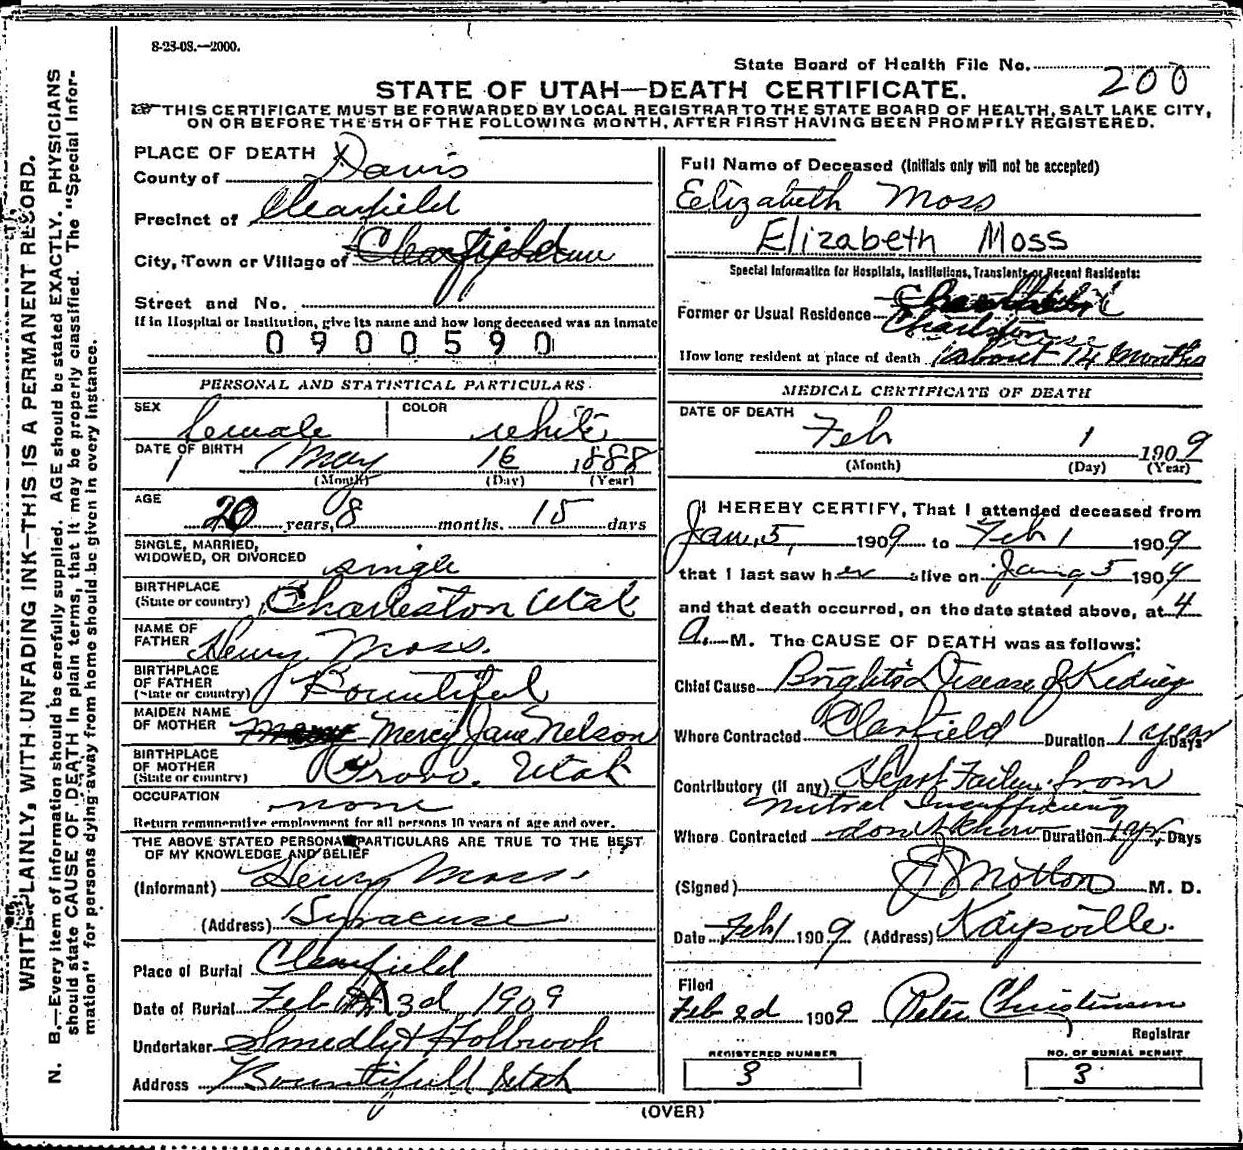 8-23-08.—2000.
State Board of Health File No. 200
STATE OF UTAH—DEATH CERTIFICATE.
THIS CERTIFICATE MUST BE FORWARDED BY LOCAL REGISTRAR TO THE STATE BOARD OF HEALTH, SALT LAKE CITY,
ON OR BEFORE THE 5TH OF THE FOLLOWING MONTH, AFTER FIRST HAVING BEEN PROMPTLY REGISTERED.
WRITE PLAINLY, WITH UNFADING INK—THIS IS A PERMANENT RECORD.
N. B.—Every item of information should be carefully supplied. AGE should be stated EXACTLY. PHYSICIANS
should state CAUSE OF DEATH in plain terms, that it may be properly classified. The "Special Infor-
mation" for persons dying away from home should be given in every instance.
PLACE OF DEATH
County of Davis
Precinct of Clearfield
City, Town or Village of Clearfield
Street and No.
If in Hospital or Institution, give its name and how long deceased was an inmate
0900590
PERSONAL AND STATISTICAL PARTICULARS.
SEX female COLOR white
DATE OF BIRTH May 16 1888
(Month) (Day) (Year)
AGE 20 years, 8 months. 15 days
SINGLE, MARRIED,
WIDOWED, OR DIVORCED single
BIRTHPLACE
(State or country) Charleston Utah
NAME OF
FATHER Henry Moss.
BIRTHPLACE
OF FATHER
(State or country) Bountiful
MAIDEN NAME
OF MOTHER Mercy Jane Nelson
BIRTHPLACE
OF MOTHER
(State or country) Provo, Utah
OCCUPATION none
Return remunerative employment for all persons 10 years of age and over.
THE ABOVE STATED PERSONAL PARTICULARS ARE TRUE TO THE BEST
OF MY KNOWLEDGE AND BELIEF
(Informant) Henry Moss.
(Address) Syracuse
Place of Burial Clearfield
Date of Burial Feb 3d 1909
Undertaker Smedly & Holbrook
Address Bountifull Utah
Full Name of Deceased (Initials only will not be accepted)
Eelizabeth Moss
Elizabeth Moss
Special Information for Hospitals, Institutions, Transients or Recent Residents:
Former or Usual Residence
Charlston
How long resident at place of death about 14 months
MEDICAL CERTIFICATE OF DEATH
DATE OF DEATH
Feb 1 1909
(Month) (Day) (Year)
I HEREBY CERTIFY, That I attended deceased from
Jan, 5, 1909 to Feb 1 1909
that I last saw her alive on Jan 5 1909
and that death occurred, on the date stated above, at 4
A. M. The CAUSE OF DEATH was as follows:
Chief Cause Brights Disease of Kidney
Where Contracted Clearfield Duration 1 year Days
Contributory (if any) Heart Failure from
Mitral Insufficiency
Where Contracted dont know Duration 1 yr, Days
(Signed) M. D.
Date Feb 1 1909 (Address) Kaysville.
Filed
Feb 2d 1909 Peter Christensen
Registrar
REGISTERED NUMBER
3
NO. OF BURIAL PERMIT
3
(OVER)